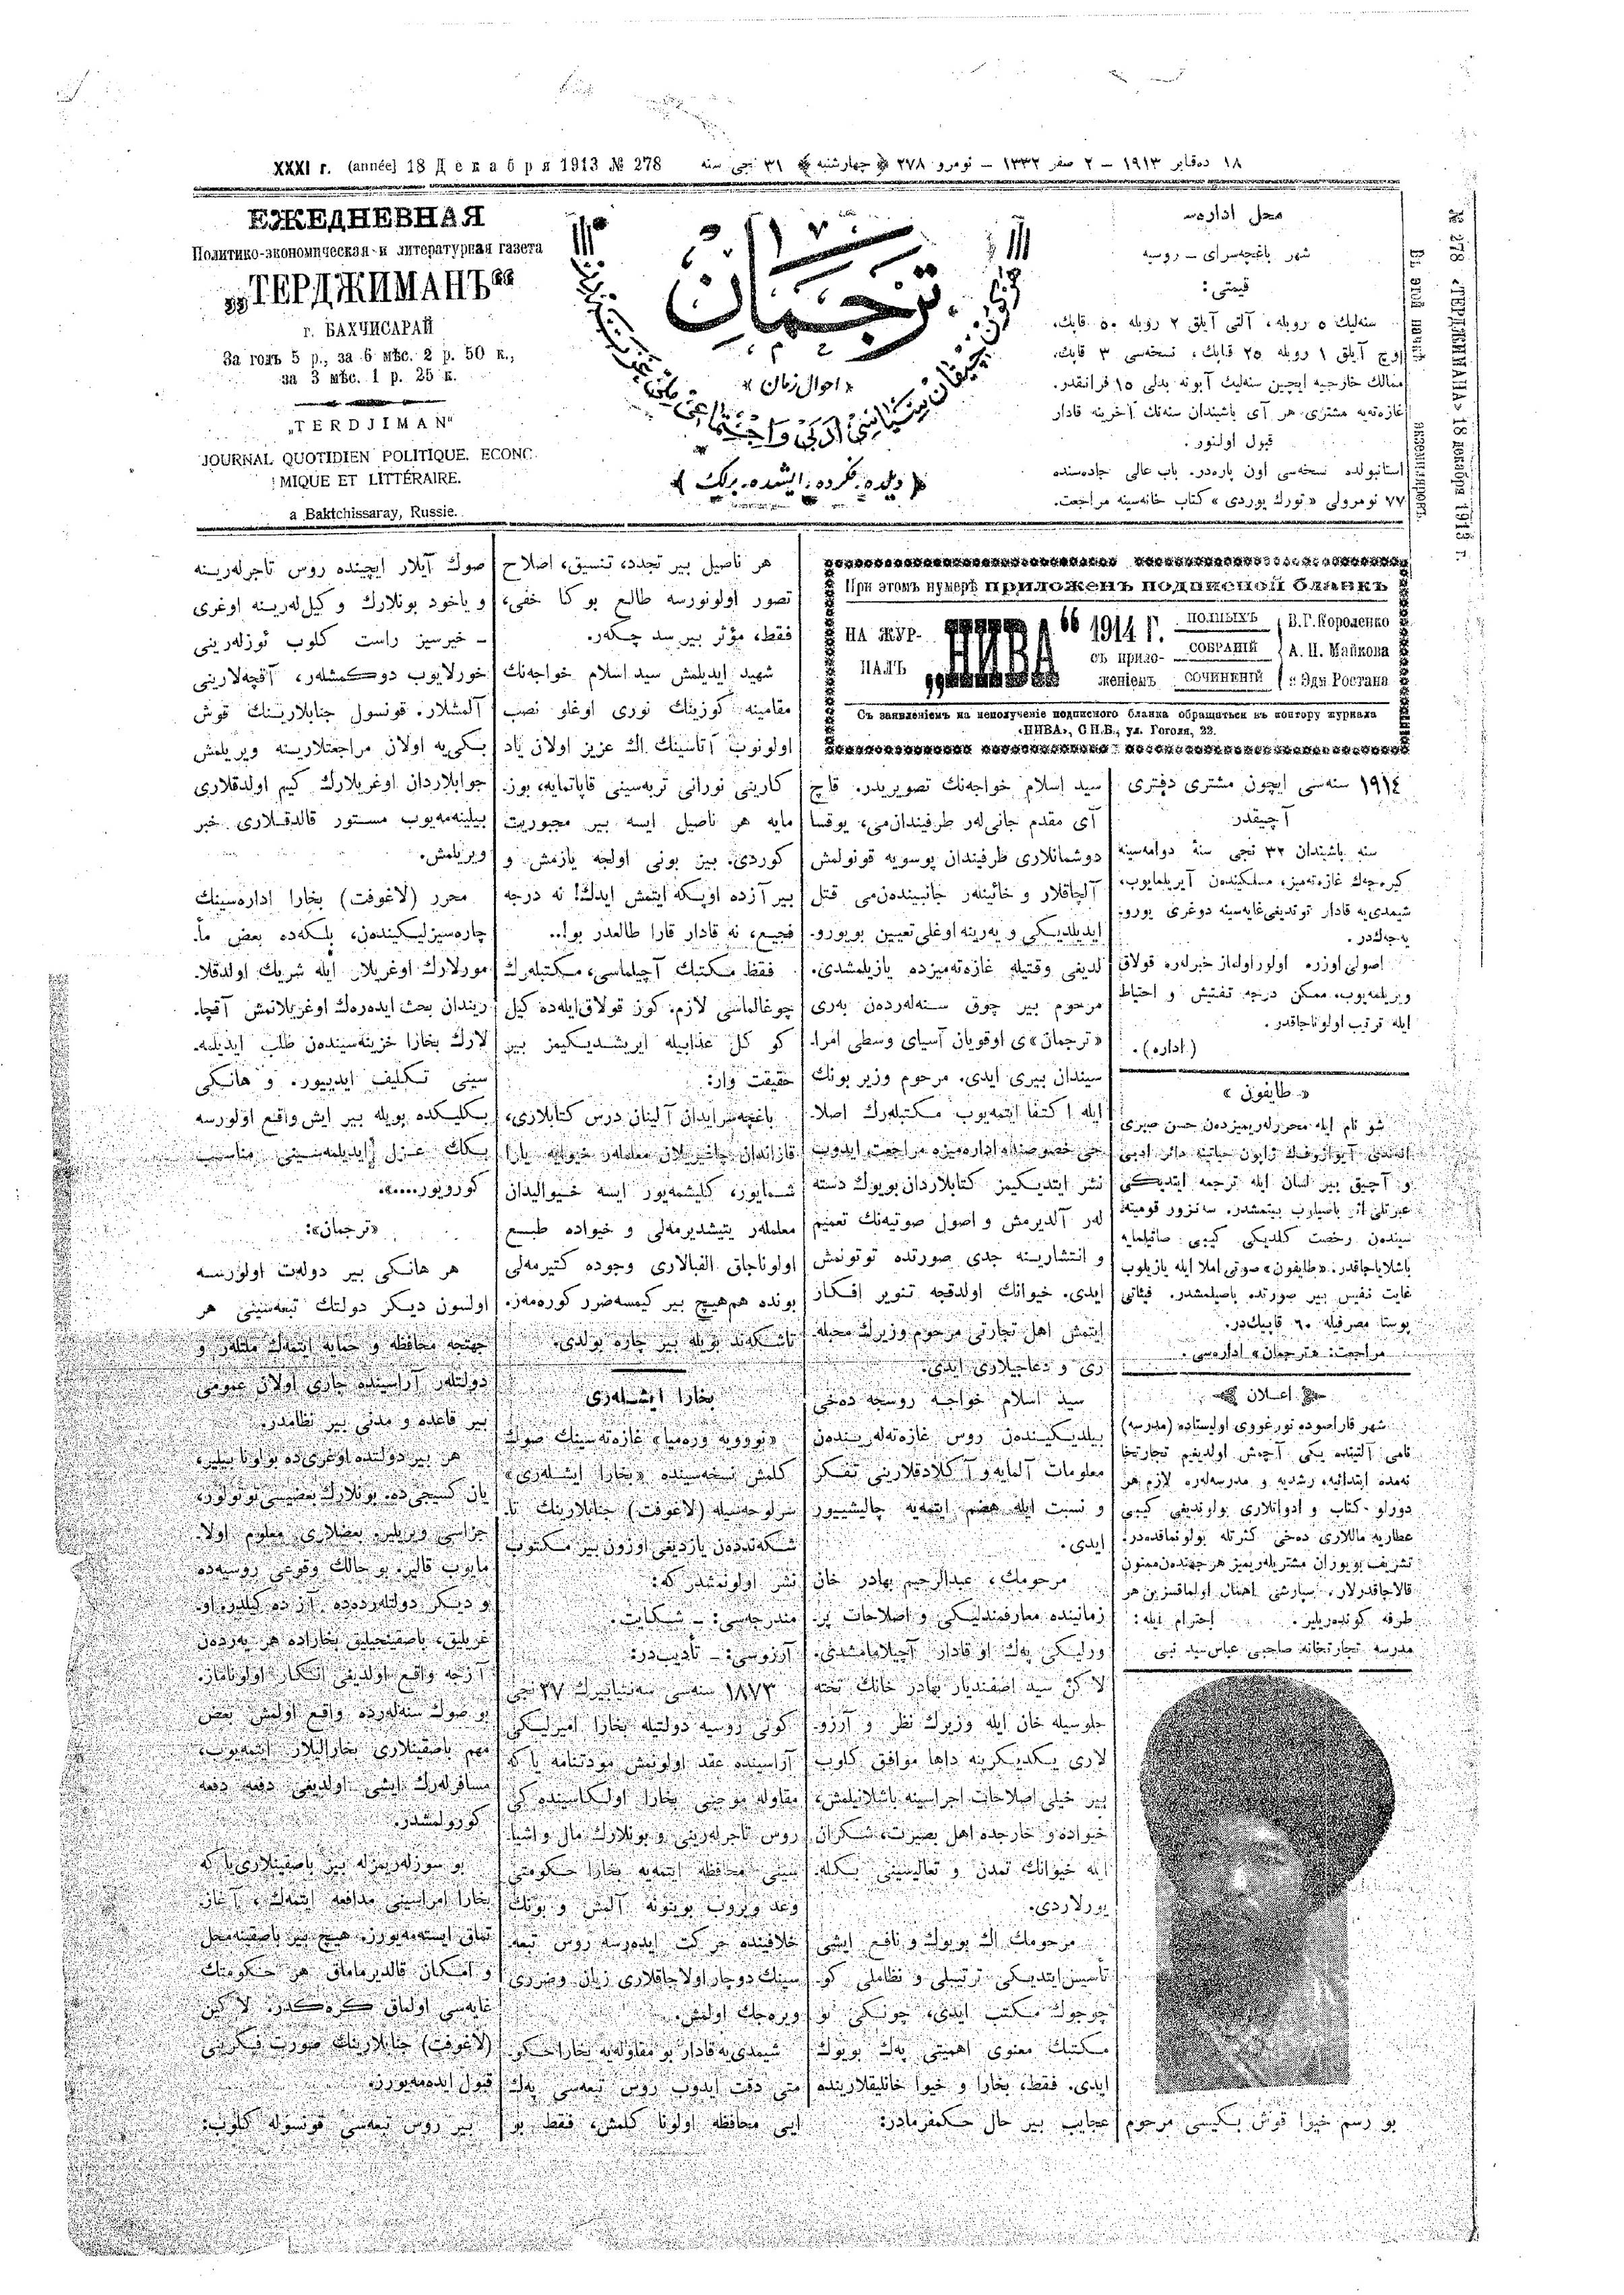 XXXI г. (année) 18 Декабря 1913 № 278
١٨ ده‌قابر ١٩١٣ – ٢ صفر ١٣٣٢ – نومرو ٢٧٨ ﴿چهارشنبه﴾ ٣١ نجی سنه
ЕЖЕДНЕВНАЯ
Политико-экономическая и литературная газета
„ТЕРДЖИМАНЪ“
г. БАХЧИСАРАЙ
За годъ 5 р., за 6 мѣс. 2 р. 50 к.,
за 3 мѣс. 1 р. 25 к.
„TERDJIMAN“
JOURNAL QUOTIDIEN POLITIQUE, ECONO
MIQUE ET LITTÉRAIRE.
a Baktchissaray, Russie.
ترجمان
«احوال زمان»
﴿دیلده، فكرده، ایشده، برلك﴾
محل اداره‌سی
شهر باغچه‌سرای – روسیه
قیمتی:
سنه‌لیك ٥ روبله، آلتی آیلق ٢ روبله ٥٠ قاپك،
اوچ آیلق ١ روبله ٢٥ قاپك، نسخه‌سی ٣ قاپك،
ممالك خارجیه ایچین سنه‌لیك آبونه بدلی ١٥ فرانقدر.
غازه‌ته‌یه مشتری هر آی باشیندان سنه‌نك آخرینه قادار
قبول اولنور.
استانبولده نسخه‌سی اون پاره‌در. باب عالی جاده‌سنده
٧٧ نومرولی «تورك یوردی» كتاب خانه‌سینه مراجعت.
№ 278 «ТЕРДЖИМАНА» 18 декабря 1913 г.
При этомъ нумерѣ приложенъ подписной бланкъ
НА ЖУР-
НАЛЪ
„НИВА“
1914 Г.
съ прило-
женіемъ
ПОЛНЫХЪ
СОБРАНІЙ
СОЧИНЕНІЙ
В. Г. Короленко
А. Н. Майкова
и Эдм Ростана
Съ заявленіемъ на неполученіе подписного бланка обращаться въ контору журнала
«НИВА», С П.Б., ул. Гоголя, 22.
١٩١٤ سنه‌سی ایچون مشتری دفتری
آچیقدر
سنه باشیندان ٣٢ نجی سنهٔ دوامه‌سینه
كیره‌جه‌ك غازه‌ته‌میز، مسلكیندن آیریلمایوب،
شیمدی‌یه قادار توتدیغی غایه‌سینه دوغری یورو-
یه‌جه‌كدر.
اصولی اوزره اولور اولماز خبرلره قولاق
ویریلمه‌یوب، ممكن درجه تفتیش و احتیاط
ایله ترتیب اولوناجاقدر.
(اداره).
«طایفون»
شو نام ایله محررلریمیزدن حسن صبری
و آچیق بیر لسان ایله ترجمه ایتدیكی
باشلایاجاقدر. «طایفون» صوتی املا ایله یازیلوب
غایت نفیس بیر صورتده باصیلمشدر. فیئاتی
پوستا مصرفیله ٦٠ قاپیك‌در.
مراجعت: «ترجمان» اداره‌سی.
اعلان
شهر قاراصوده تورغووی اولیستاده (مدرسه)
نامی آلتینده یكی آچمش اولدیغیم تجارتخا
نه‌مده ابتدائیه، رشدیه و مدرسه‌لره لازم هر
دورلو كتاب و ادواتلاری بولوندیغی كیبی
عطاریه ماللاری ده‌خی كثرتله بولونماقده‌در.
تشریف بویوران مشتریلریمیز هر جهتدن ممنون
قالاجاقدرلار. سپارشی اهمال اولماقسزین هر
طرفه كوندریلیر. احترام ایله:
مدرسه تجارتخانه صاحبی عباس سید نبی
بو رسم خیوا قوش بكیسی مرحوم
سید اسلام خواجه‌نك تصویریدر. قاچ
آی مقدم جانی‌لر طرفیندان‌می، یوقسا
دوشمانلاری طرفیندان پوسویه قونولمش
آلچاقلار و خائینلر جانبیندن‌می قتل
ایدیلدیكی و یه‌رینه اوغلی تعیین بویورو-
لدیغی وقتیله غازه‌ته‌میزده یازیلمشدی.
مرحوم بیر چوق سنه‌لردن به‌ری
«ترجمان»ی اوقویان آسیای وسطی امرا-
سیندان بیری ایدی. مرحوم وزیر بونك
ایله اكتفا ایتمه‌یوب مكتبلرك اصلا-
حی خصوصنده اداره‌میزه مراجعت ایدوب
نشر ایتدیكیمز كتابلاردان بویوك دسته
لر آلدیرمش و اصول صوتیه‌نك تعمیم
و انتشارینه جدی صورتده توتونمش
ایدی. خیوانك اولدقجه تنویر افكار
ایتمش اهل تجارتی مرحوم وزیرك محبله
ری و دعاجیلاری ایدی.
سید اسلام خواجه روسجه ده‌خی
بیلدیكیندن روس غازه‌ته‌لریندن
معلومات آلمایه و آكلادقلارینی تفكر
و نسبت ایله هضم ایتمه‌یه چالیشییور
ایدی.
مرحومك، عبدالرحیم بهادر خان
زمانینده معارفمندلیكی و اصلاحات پر-
ورلیكی پك او قادار آچیلامامشدی.
لاكن سید اصفندیار بهادر خانك تخته
جلوسیله خان ایله وزیرك نظر و آرزو-
لاری یكدیكرینه داها موافق كلوب
بیر خیلی اصلاحات اجراسینه باشلانیلمش،
خیواده و خارجده اهل بصیرت، شكران
ایله خیوانك تمدن و تعالیسینی بكله-
یورلاردی.
مرحومك اك بویوك و نافع ایشی
تأسیس ایتدیكی ترتیبلی و نظاملی كو-
چوجوك مكتب ایدی، چونكی بو
مكتبك معنوی اهمیتی پك بویوك
ایدی. فقط، بخارا و خیوا خانلیقلارینده
عجایب بیر حال حكمفرمادر:
هر ناصیل بیر تجدد، تنسیق، اصلاح
تصور اولونورسه طالع بوكا خفی،
فقط، مؤثر بیر سد چكر.
شهید ایدیلمش سید اسلام خواجه‌نك
مقامینه كوزینك نوری اوغلو نصب
اولونوب آتاسینك اك عزیز اولان یاد
كارینی نورانی تربه‌سینی قاپاتمایه، بوز-
مایه هر ناصیل ایسه بیر مجبوریت
كوردی. بیز بونی اولجه یازمش و
بیر آزده اوپكه ایتمش ایدك! نه درجه
فجیع، نه قادار قارا طالعدر بو!..
فقط مكتبك آچیلماسی، مكتبلرك
چوغالماسی لازم. كوز قولاق ایله‌ده كیل
كو كل عذابیله ایریشدیكیمز بیر
حقیقت وار:
باغچه‌سرایدان آلینان درس كتابلاری،
قازاندان چاغیریلان معلملر خیوایه یارا
شمایور، كلیشمه‌یور ایسه خیوالیدان
معلملر یتیشدیرمه‌لی و خیواده طبع
اولوناجاق الفبالاری وجوده كتیرمه‌لی
بونده هم هیچ بیر كیمسه ضرر كوره‌مز.
تاشكه‌ند بویله بیر چاره بولدی.
بخارا ایشله‌ری
«نوویه وره‌میا» غازه‌ته‌سینك صوك
كلمش نسخه‌سینده «بخارا ایشله‌ری»
سرلوحه‌سیله (لاغوفت) جنابلارینك تا-
شكه‌ندده‌ن یازدیغی اوزون بیر مكتوب
نشر اولونمشدر كه:
مندرجه‌سی: – شكایت.
آرزوسی: – تأدیب‌در:
١٨٧٣ سنه‌سی سه‌نتیابیرك ٢٧ نجی
كونی روسیه دولتیله بخارا امیرلیكی
آراسینده عقد اولونمش مودتنامه یا كه
مقاوله موجبی بخارا اولكاسینده كی
روس تاجرلرینی و بونلارك مال و اشیا-
سینی محافظه ایتمه‌یه بخارا حكومتی
وعد ویروب بوینونه آلمش و بونك
خلافینده حركت ایدرسه روس تبعه-
سینك دوچار اولاجاقلاری زیان و ضرری
ویره‌جك اولمش.
شیمدی‌یه قادار بو مقاوله‌یه بخارا حكو-
متی دقت ایدوب روس تبعه‌سی پك
ایی محافظه اولونا كلمش، فقط بو
صوك آیلار ایچینده روس تاجرلرینه
و یاخود بونلارك وكیل‌لرینه اوغری
– خیرسیز راست كلوب ئوزلرینی
خورلایوب دوكمشلر، آقچه‌لارینی
آلمشلار. قونسول جنابلارینك قوش
بكی‌یه اولان مراجعتلارینه ویریلمش
جوابلاردان اوغریلارك كیم اولدقلاری
بیلینه‌مه‌یوب مستور قالدقلاری خبر
ویریلمش.
محرر (لاغوفت) بخارا اداره‌سینك
چاره‌سیزلیكیندن، بلكه‌ده بعض مأ-
مورلارك اوغریلار ایله شریك اولدقلا-
ریندان بحث ایدرك اوغریلانمش آقچا-
لارك بخارا خزینه‌سیندن طلب ایدیلمه-
سینی تكلیف ایدییور. و هانكی
بكلیكده بویله بیر ایش واقع اولورسه
بكك عزل ایدیلمه‌سینی مناسب
كورویور....».
«ترجمان»:
هر هانكی بیر دولت اولورسه
اولسون دیكر دولتك تبعه‌سینی هر
جهتجه محافظه و حمایه ایتمه‌ك ملتلر و
دولتلر آراسینده جاری اولان عمومی
بیر قاعده و مدنی بیر نظامدر.
هر بیر دولتده اوغری‌ده بولونا بیلیر،
یان كسیجی‌ده. بونلارك بعضیسی توتولور،
جزاسی ویریلیر. بعضلاری معلوم اولا-
مایوب قالیر. بو حالك وقوعی روسیه‌ده
و دیكر دولتلرده‌ده آز ده كیلدر. او-
غریلیق، باصقینجیلیق بخاراده هر یه‌ردن
آزجه واقع اولدیغی انكار اولونماز.
بو صوك سنه‌لرده واقع اولمش بعض
مهم باصقینلاری بخارالیلار ایتمه‌یوب،
مسافرلرك ایشی اولدیغی دفعه دفعه
كورولمشدر.
بو سوزلریمزله بیز باصقینلاری یا كه
بخارا امراسینی مدافعه ایتمه‌ك، آغار
تماق ایسته‌مه‌یورز. هیچ بیر باصقینه محل
و امكان قالدیرماماق هر حكومتك
غایه‌سی اولماق كره‌كدر. لاكین
(لاغوفت) جنابلارینك صورت فكرینی
قبول ایده‌مه‌یورز.
بیر روس تبعه‌سی قونسوله كلوب: